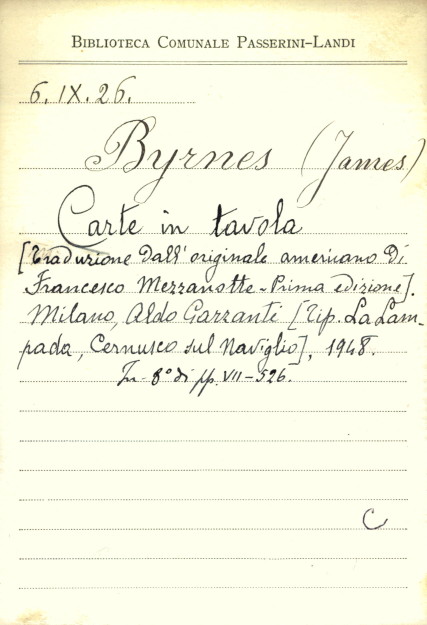 BIBLIOTECA COMUNALE PASSERINI-LANDI
6.IX.26.
Byrnes (James)
Carte in tavola
[Traduzione dall'originale americano di
Francesco Mezzanotte - Prima edizione].
Milano, Aldo Garzanti [Tip. La Lam-
pada, Cernusco sul Naviglio], 1948.
In-8° di pp. VII-526.
C